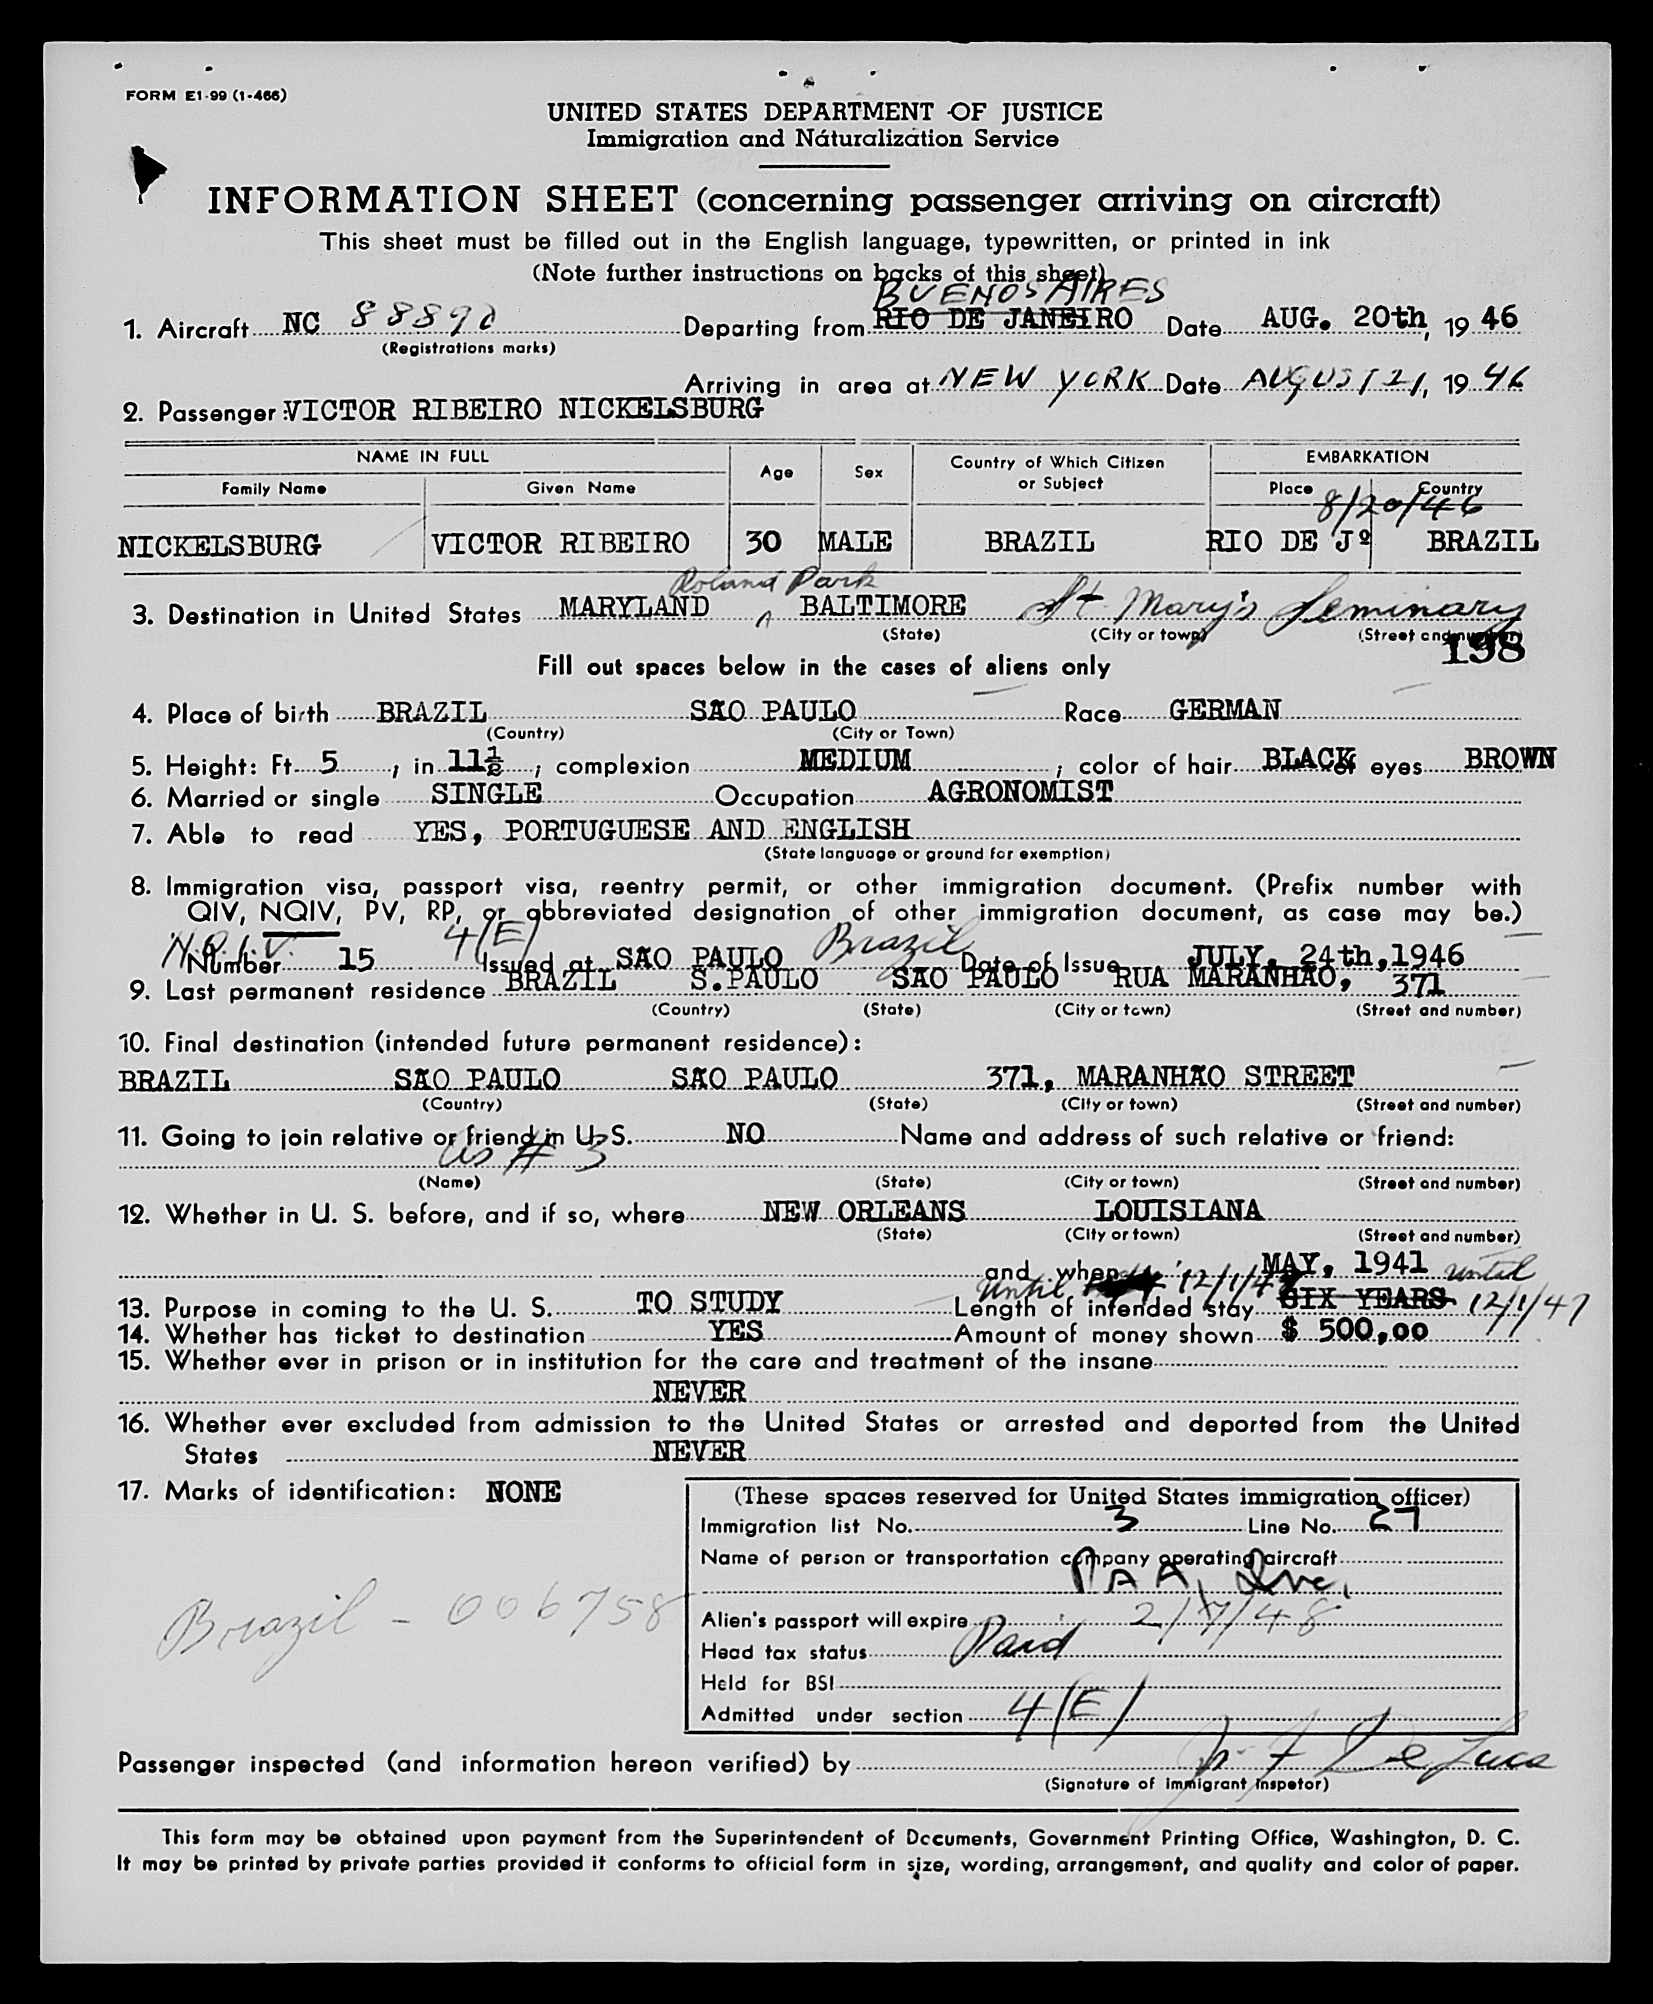 FORM E1-99 (1-466)
UNITED STATES DEPARTMENT OF JUSTICE
Immigration and Naturalization Service
INFORMATION SHEET (concerning passenger arriving on aircraft)
This sheet must be filled out in the English language, typewritten, or printed in ink
(Note further instructions on backs of this sheet)
BUENOS AIRES
1. Aircraft NC 88890 Departing from RIO DE JANEIRO Date AUG. 20th, 19 46
(Registrations marks)
Arriving in area at NEW YORK Date AUGUST 21, 19 46
2. Passenger VICTOR RIBEIRO NICKELSBURG
NAME IN FULL Age Sex Country of Which Citizen or Subject EMBARKATION
Family Name Given Name Place Country
8/20/46
NICKELSBURG VICTOR RIBEIRO 30 MALE BRAZIL RIO DE Jº BRAZIL
Roland Park
3. Destination in United States MARYLAND BALTIMORE St Mary's Seminary
(State) (City or town) (Street and number)
198
Fill out spaces below in the cases of aliens only
4. Place of birth BRAZIL SÃO PAULO Race GERMAN
(Country) (City or Town)
5. Height: Ft. 5, in. 11½; complexion MEDIUM; color of hair BLACK of eyes BROWN
6. Married or single SINGLE Occupation AGRONOMIST
7. Able to read YES, PORTUGUESE AND ENGLISH
(State language or ground for exemption)
8. Immigration visa, passport visa, reentry permit, or other immigration document. (Prefix number with
QIV, NQIV, PV, RP, or abbreviated designation of other immigration document, as case may be.)
N.Q.I.V. 4(E) Brazil
Number 15 Issued at SÃO PAULO Date of Issue JULY, 24th, 1946
9. Last permanent residence BRAZIL S.PAULO SÃO PAULO RUA MARANHÃO, 371
(Country) (State) (City or town) (Street and number)
10. Final destination (intended future permanent residence):
BRAZIL SÃO PAULO SÃO PAULO 371, MARANHÃO STREET
(Country) (State) (City or town) (Street and number)
11. Going to join relative or friend in U.S. NO Name and address of such relative or friend:
as # 3
(Name) (State) (City or town) (Street and number)
12. Whether in U. S. before, and if so, where NEW ORLEANS LOUISIANA
(State) (City or town) (Street and number)
and when MAY, 1941 until
until 12/1/4
13. Purpose in coming to the U. S. TO STUDY Length of intended stay SIX YEARS 12/1/47
14. Whether has ticket to destination YES Amount of money shown $ 500,00
15. Whether ever in prison or in institution for the care and treatment of the insane
NEVER
16. Whether ever excluded from admission to the United States or arrested and deported from the United
States NEVER
17. Marks of identification: NONE
(These spaces reserved for United States immigration officer)
Immigration list No. 3 Line No. 27
Name of person or transportation company operating aircraft
PAA, Inc.
Alien's passport will expire 2/7/48
Head tax status Paid
Held for BSI
Admitted under section 4(E)
Brazil - 006758
Passenger inspected (and information hereon verified) by De Luca
(Signature of Immigrant Inspetor)
This form may be obtained upon payment from the Superintendent of Documents, Government Printing Office, Washington, D. C.
It may be printed by private parties provided it conforms to official form in size, wording, arrangement, and quality and color of paper.